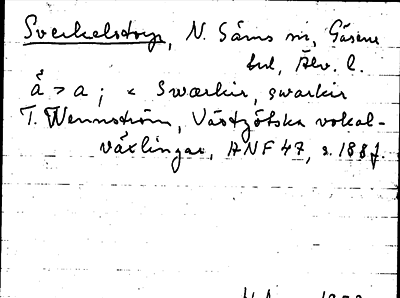 Sverkelstorp, N. Säms sn, Gäsene
hd, Älv. l.
å > a ; < Swærkir, swarkir
T. Wennström, Västgötska vokal-
växlingar, ANF 47, s. 188 f.